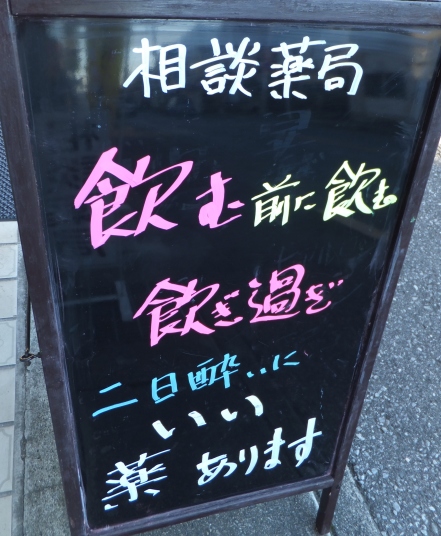 相談薬局
飲む前に飲む
飲ぎ過ぎ
二日酔いに
いい
薬あります